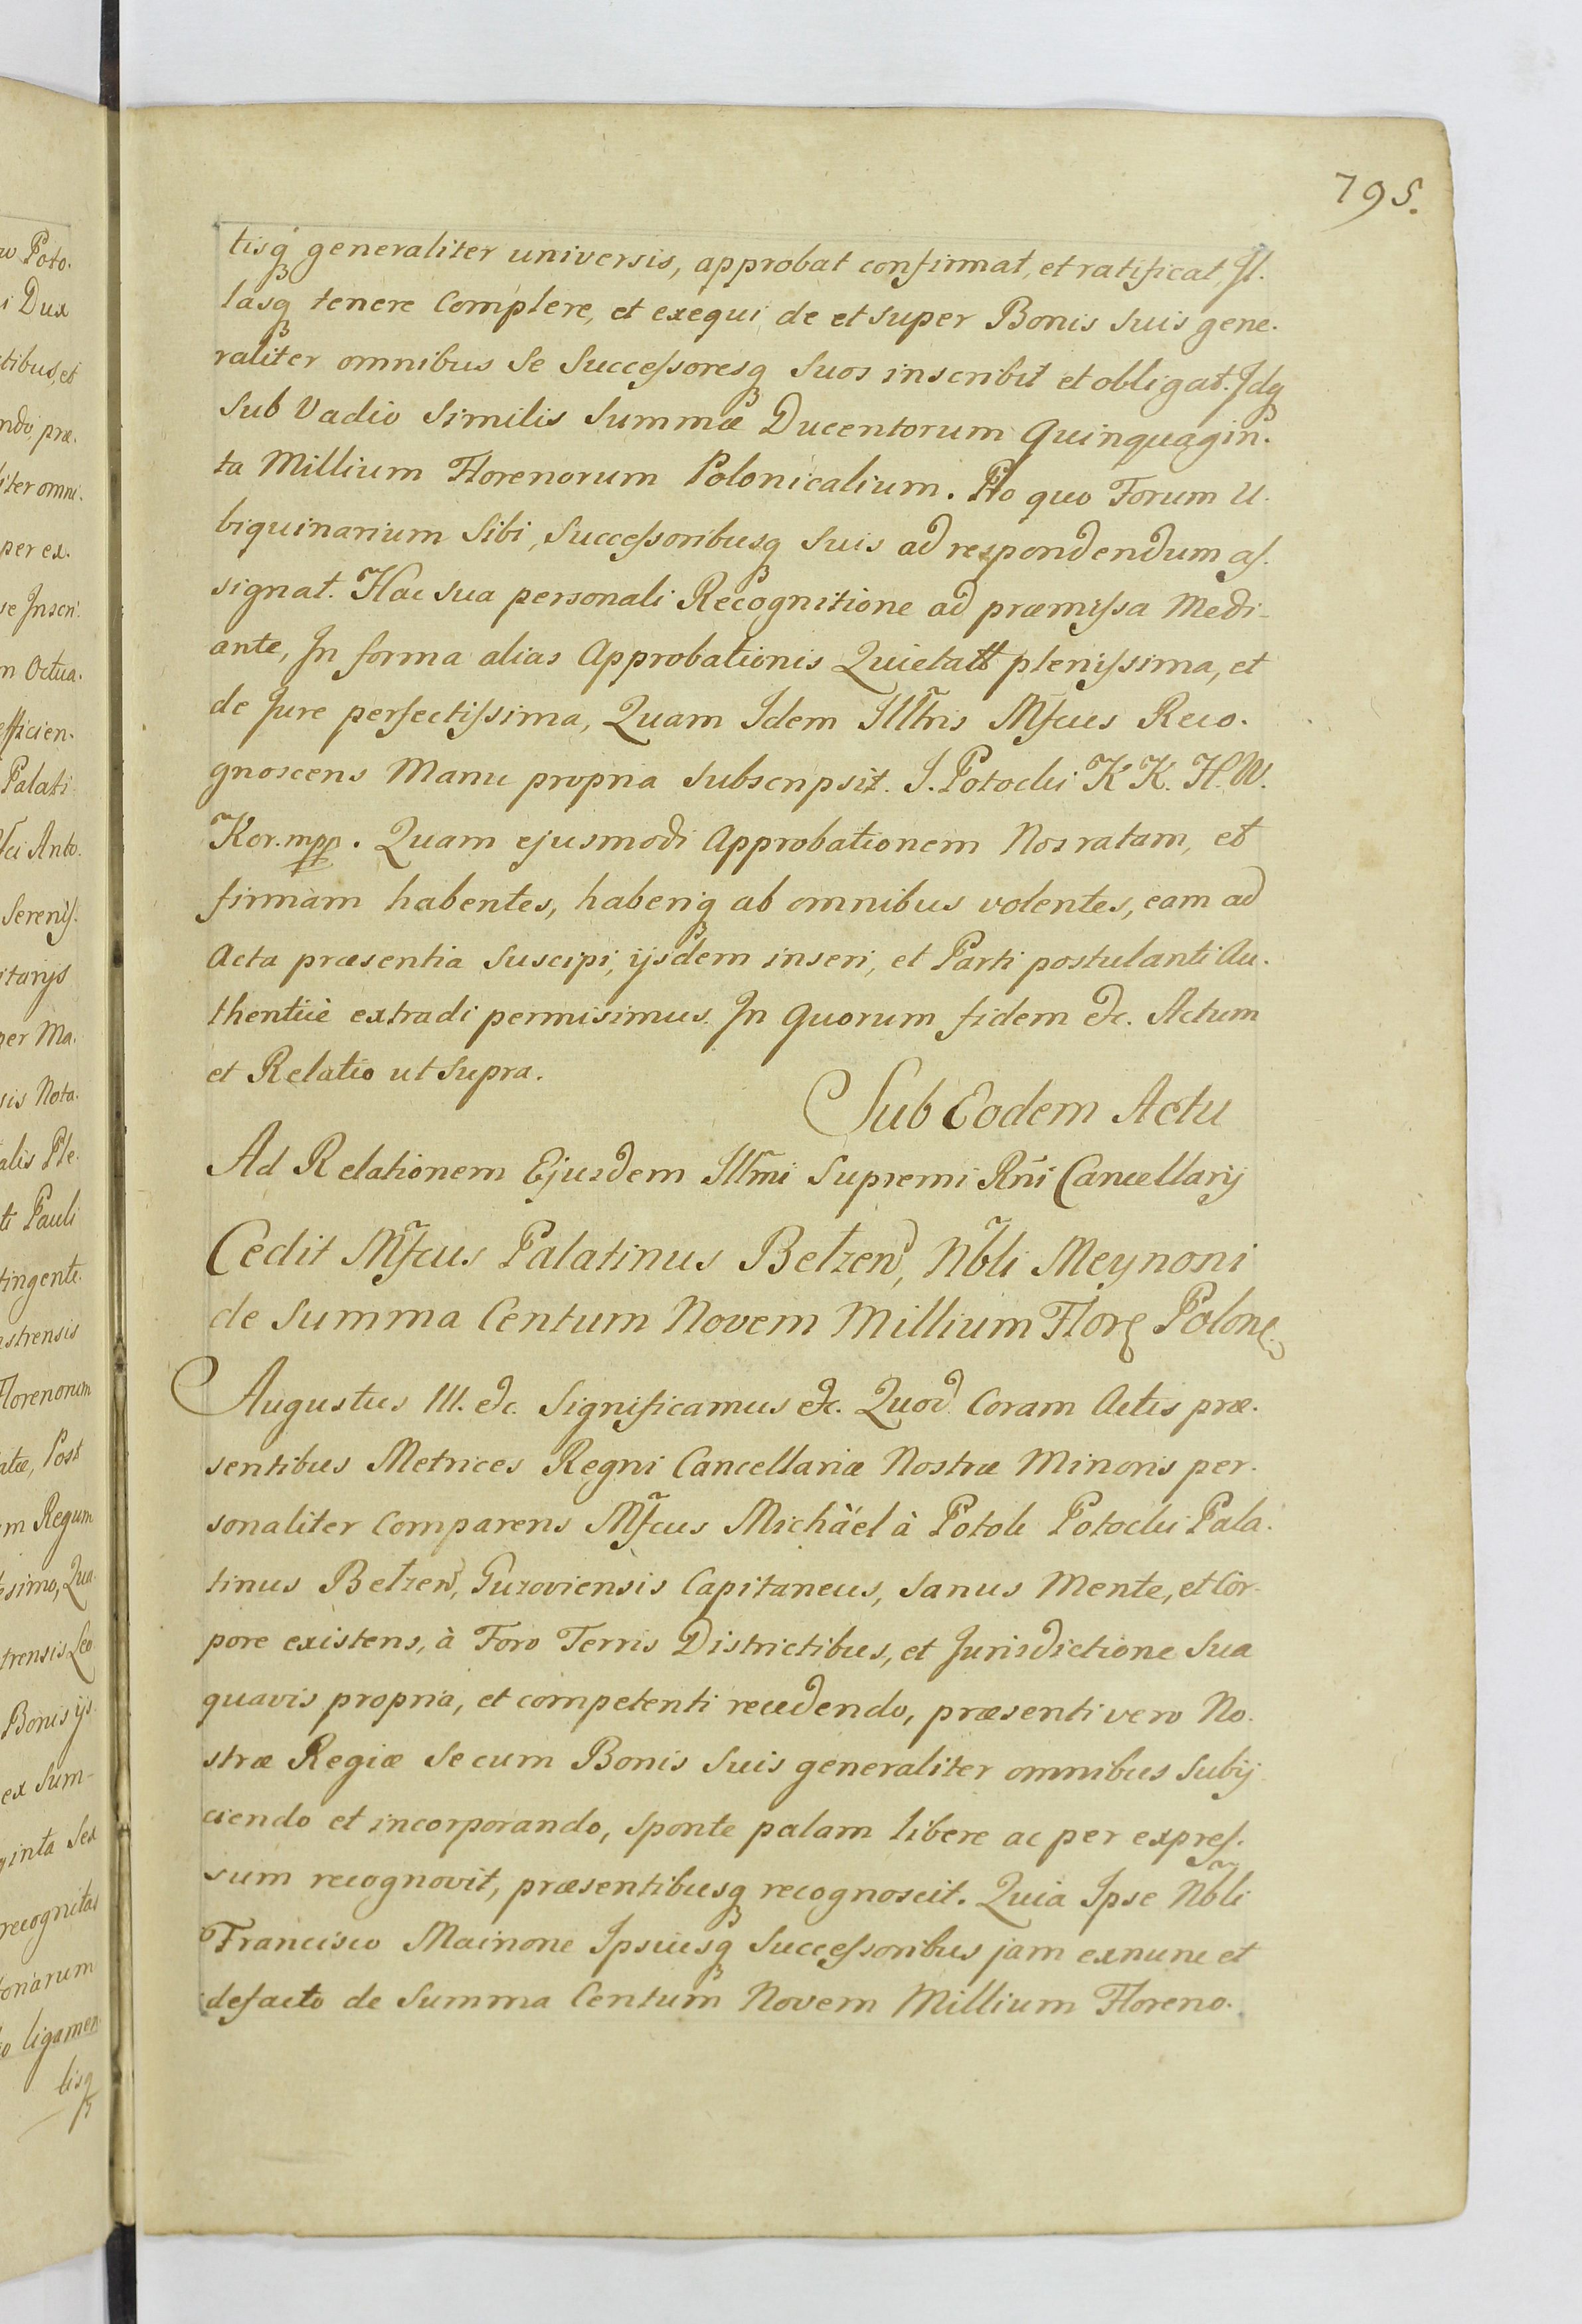 795.
tisq₃ generaliter universis, approbat confirmat, et ratificat, Il.
lasq₃ tenere Complere, et exequi de et super Bonis suis gene.
raliter omnibus se Successoresq₃ suos inscribit et obligat. Idq₃
sub Vadio similis summæ Ducentorum Quinquagin.
ta Millium Florenorum Polonicalium. Pro quo Forum U.
biquinarium sibi, Successoribusq₃ suis ad respondendum as.
signat. Hac sua personali Recognitione ad præmissa Medi-
ante, In forma alias Approbationis plenissima, et
de Jure perfectissima, Quam Idem Illtris Mfcus Reco.
gnoscens Manu propria subscripsit. I. Potocki K K. H. W.
Kor. mpp. Quam ejusmodi Approbationem Nos ratam, et
firmam habentes, haberiq₃ ab omnibus volentes, eam ad
Acta præsentia suscipi, ijsdem inseri, et Parti postulanti Au.
thenticè extradi permisimus. In Quorum fidem &c. Actum
et Relatio ut supra.
Sub Eodem Actu
Ad Relationem Ejusdem Illmi Supremi Rni Cancellarij
Cedit Mfcus Palatinus Belzen, Nbli Meynoni
de Summa Centum Novem Millium Flor Polon
Augustus III. &c. Significamus &c. Quod Coram Actis præ.
sentibus Metrices Regni Cancellariæ Nostræ Minoris per.
sonaliter Comparens Mfcus Michäel à Potok Potocki Pala.
tinus Belzen, Guzoviensis Capitaneus, sanus Mente, et Cor-
pore existens, à Foro Terris Districtibus, et Jurisdictione sua
quavis propria, et competenti recedendo, præsenti vero No.
stræ Regiæ se cum Bonis suis generaliter omnibus subij
ciendo et incorporando, sponte palam libere ac per expres.
sum recognovit, præsentibusq₃ recognoscit. Quia Ipse Nbli
Francisco Mainone Ipsiusq₃ Successoribus jam exnunc et
defacto de Summa Centum Novem Millium Floreno.